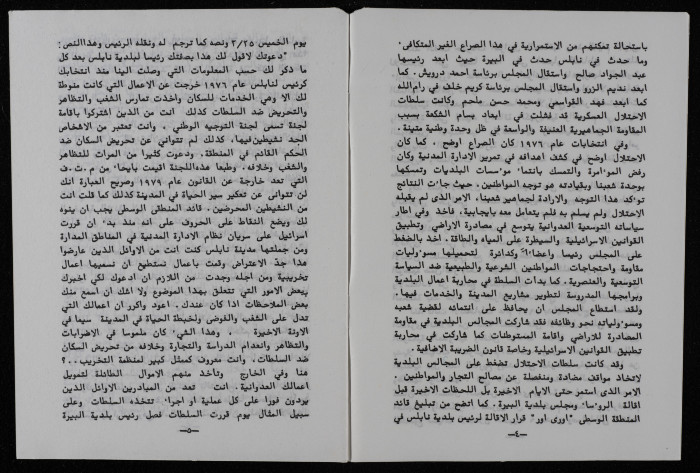 باستحالة تمكنهم من الاستمرارية في هذا الصراع الغير المتكافىء
وما حدث في نابلس حدث في البيرة حيث ابعد رئيسها
عبد الجواد صالح واستقال المجلس برئاسة احمد درويش. كما
ابعد نديم الزرو واستقال المجلس برئاسة كريم خلف في رام الله
كما ابعد فهد القواسمي ومحمد حسن ملحم وكانت سلطات
الاحتلال العسكرية قد فشلت في ابعاد بسام الشكعة بسبب
المقاومة الجماهيرية العنيفة والواسعة في ظل وحدة وطنية متينة.
وفي انتخابات عام ١٩٧٦ كان الصراع اوضح. كما كان
الاحتلال اوضح في كشف اهدافه في تمرير الادارة المدنية وكان
رفض المؤامرة والتمسك بانتماء مؤسسات البلديات وتمسكها
بوحدة شعبنا وبقيادته هو توجه المواطنين. حيث جاءت النتائج
تؤكد هذا التوجه والارادة لجماهير شعبنا، الامر الذي لم يقبله
الاحتلال ولم يسلم به فلم يتعامل معه بايجابية، فأخذ وفي اطار
سياساته التوسعية العدوانية يتوسع في مصادرة الاراضي وتطبيق
القوانين الاسرائيلية والسيطرة على المياه والطاقة. اخذ بالضغط
على المجلس رئيسا واعضاء وكدائرة لتحميلها مسؤوليات
مقاومة واحتجاجات المواطنين الشرعية والطبيعية ضد السياسة
التوسعية والعنصرية. كما بدأت السلطة في محاربة اعمال البلدية
وبرامجها المدروسة لتطوير مشاريع المدينة والخدمات فيها.
ولقد استطاع المجلس ان يحافظ على انتمائه لقضية شعبه
ومسؤولياته نحو وظائفه فقد شاركت المجالس البلدية في مقاومة
المصادرة للاراضي واقامة المستوطنات كما شاركت في محاربة
تطبيق القوانين الاسرائيلية وخاصة قانون الضريبة الاضافية.
وقد كانت سلطات الاحتلال تضغط على المجالس البلدية
لاتخاذ مواقف مضادة ومنفصلة عن مصالح التجار والمواطنين.
الامر الذي استمر حتى الايام الاخيرة بل اللحظات الاخيرة قبل
اقالة الرؤساء ومجلس بلدية البيرة. كما اتضح من تبليغ قائد
المنطقة الوسطى "اوري اور" قرار الاقالة لرئيس بلدية نابلس في
—٤—
يوم الخميس ٣/٢٥ ونصه كما ترجم له ونقله الرئيس وهذا النص:
"دعوتك لاقول لك هذا بصفتك رئيسا لبلدية نابلس بعد كل
ما ذكر لك حسب المعلومات التي وصلت الينا منذ انتخابك
كرئيس لنابلس عام ١٩٧٦ خرجت عن الاعمال التي كانت منوطة
لك الا وهي الخدمات للسكان واخذت تمارس الشغب والتظاهر
والتحريض ضد السلطات كذلك انت من الذين اشتركوا باقامة
لجنة تسمى لجنة التوجيه الوطني. وانت تعتبر من الاشخاص
الجد نشيطين فيها، كذلك لم تتوانى عن تحريض السكان ضد
الحكم القائم في المنطقة. ودعوت كثيرا من المرات للتظاهر
والشغب وخلافه. وطبعا هذه اللجنة اقيمت بايحاء من م.ت.ف
التي تعد خارجة عن القانون عام ١٩٧٩ وصريح العبارة انك
لن تتوانى عن تعكير سير الحياة في المدينة كذلك كما قلت انت
من النشيطين المحرضين. قائد المنطقتي الوسطى يجب ان ينوه
لك ويضع النقاط على الحروف على انه منذ بدء ان قررت
اسرائيل على سريان نظام الادارة المدنية في المناطق المدارة
ومن جملتها مدينة نابلس كنت انت من الاوائل الذين عارضوا
هذا جدّ الاعتراض وقمت باعمال نستطيع ان نسميها اعمال
تخريبية ومن اجله وجدت من اللازم ان ادعوك لكي اخبرك
ببعض الامور التي تتعلق بهذا الموضوع ولا اشك ان اسمع منك
بعض الملاحظات اذا كان عندك. اعود واكرر ان اعمالك التي
تدل على الشغب والفوضى ولخبطة الحياة في المدينة سيما في
الاونة الاخيرة. وهذا الشيء كان ملموسا في الاضرابات
والتظاهر وانعدام الدراسة والتجارة وخلافه من تحريض السكان
ضد السلطات. وانت معروف كممثل كبير لمنظمة التخريب..؟
هنا وفي الخارج وتأخذ منهم الاموال الطائلة لتمويل
اعمالك العدوانية. انت تعد من المبادرين الاوائل الذين
يردون فورا على كل عملية او اجراء تتخذه السلطات وعلى
سبيل المثال يوم قررت السلطات فصل رئيس بلدية البيرة
—٥—